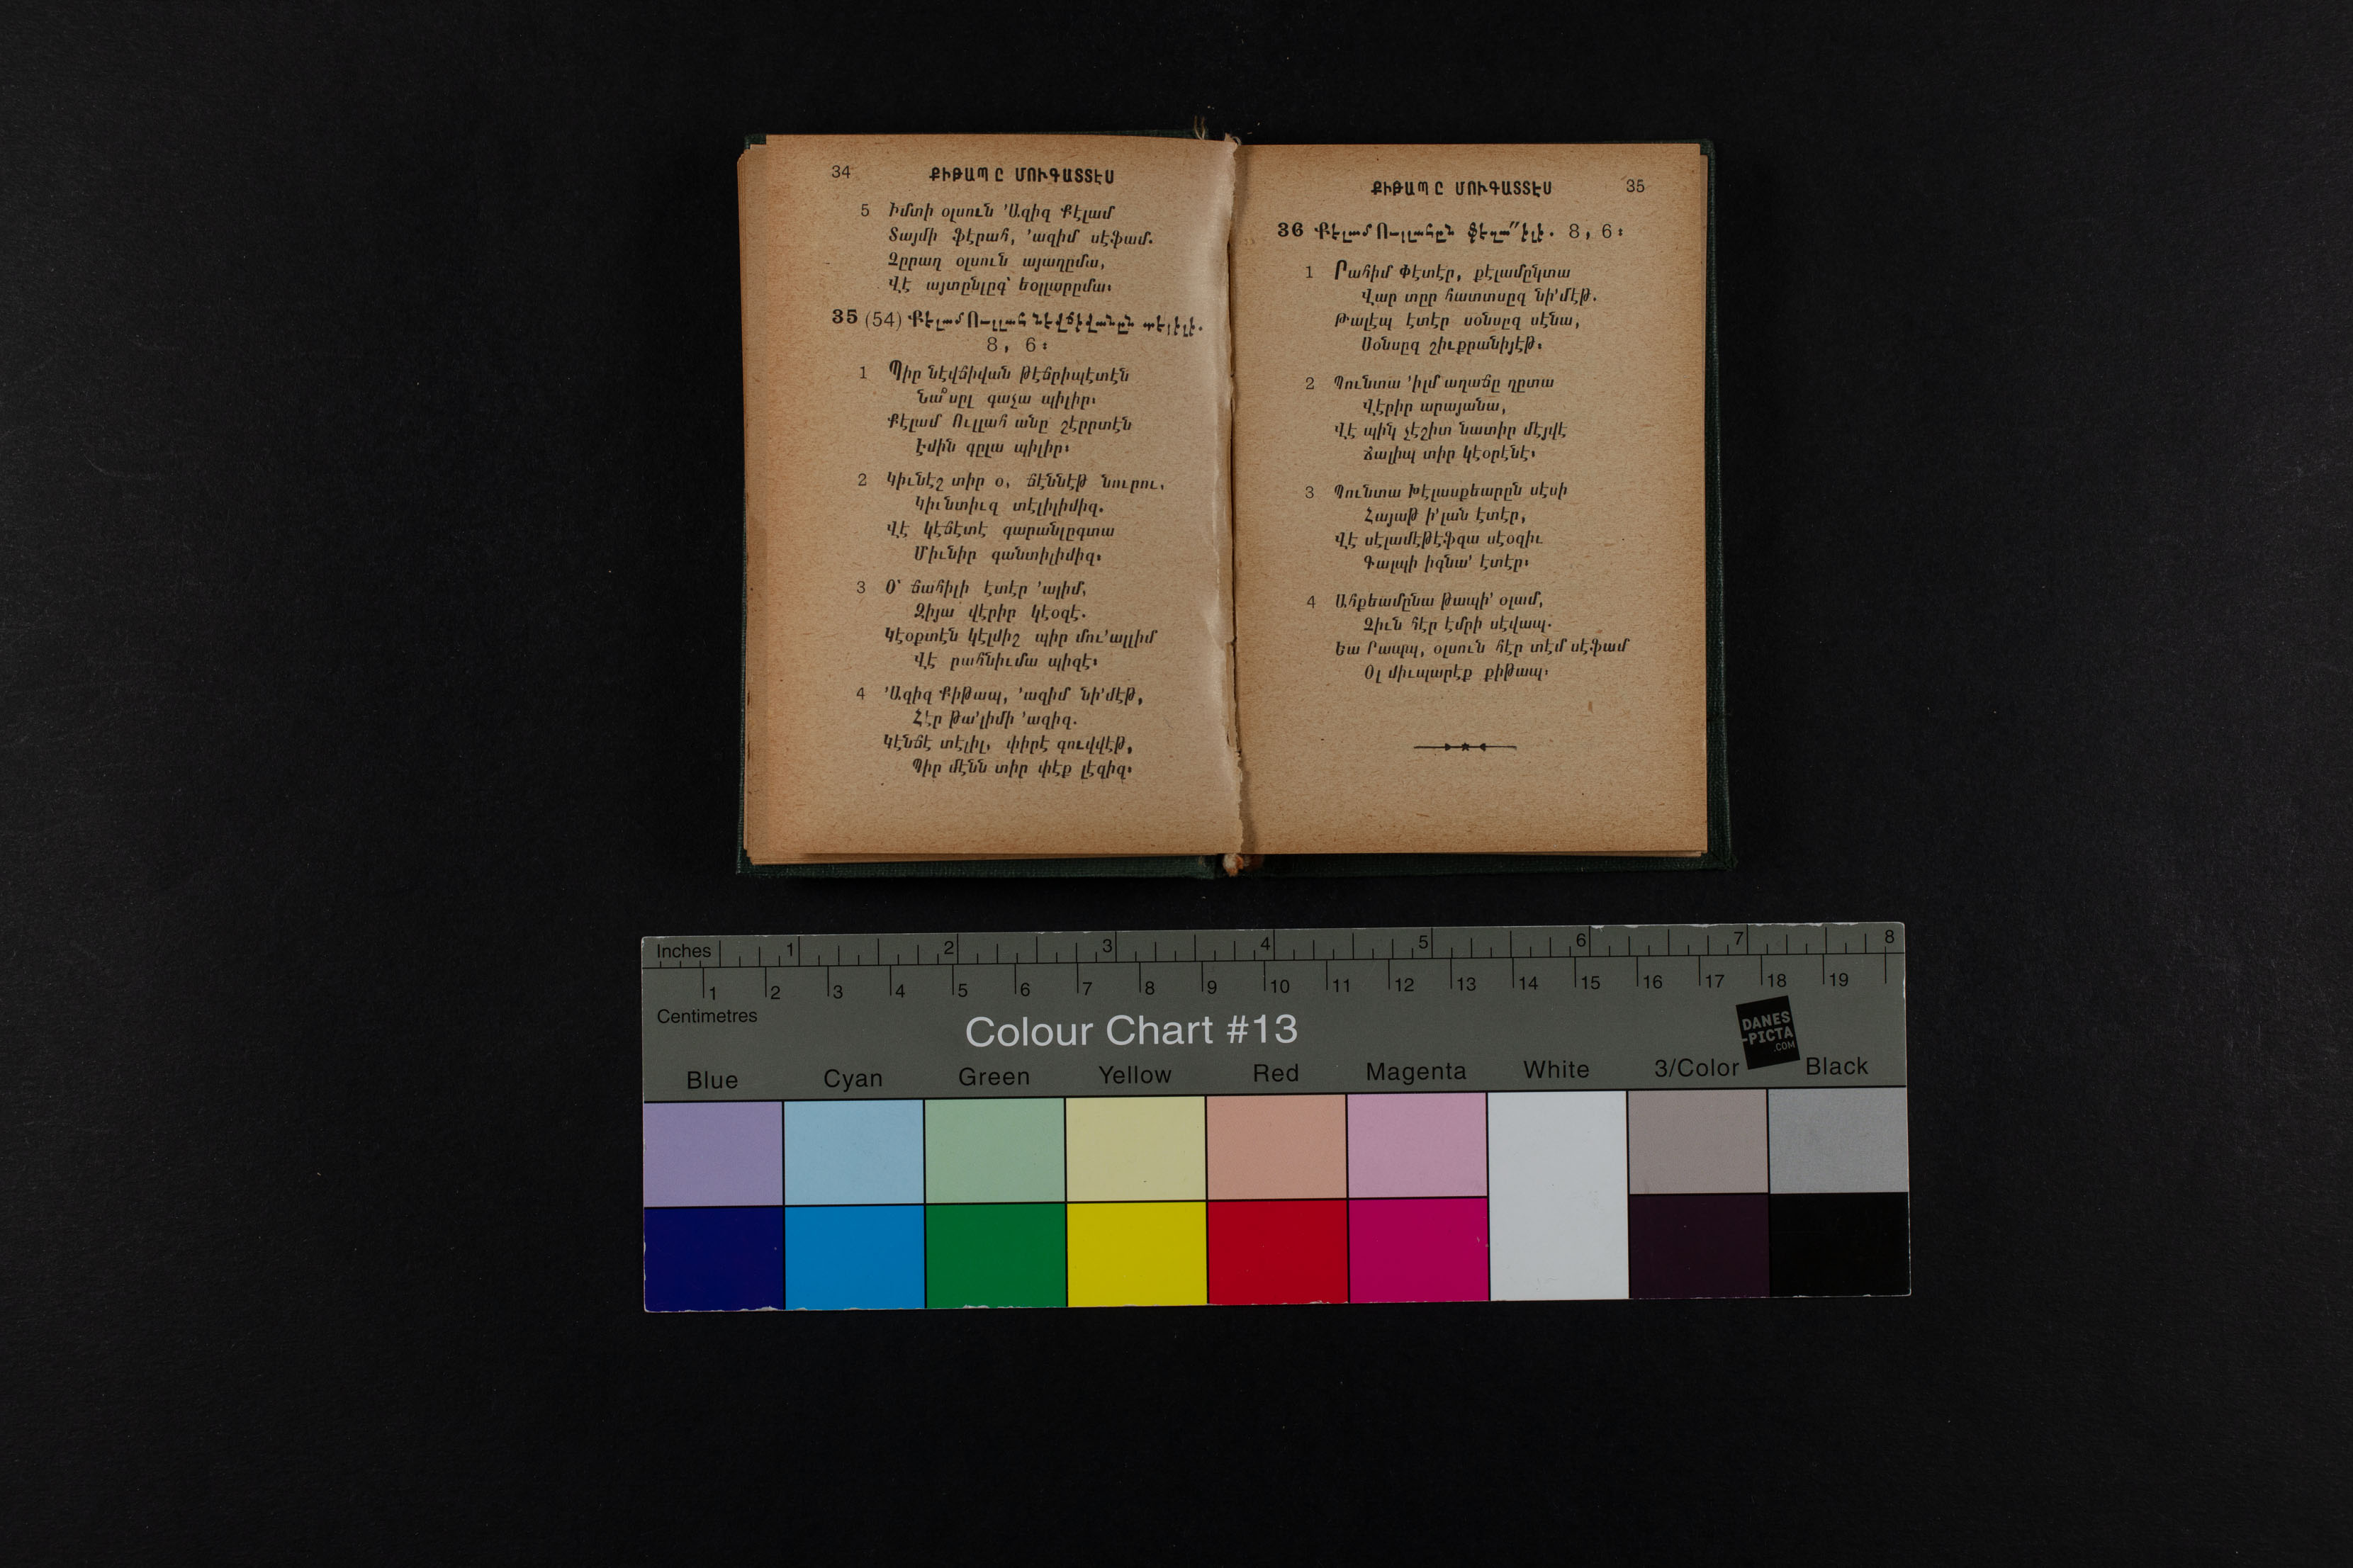 34 ՔԻԹԱՊ Ը ՄՈՒԳԱՏՏԷՍ
5 Իմտի օլսուն ՚Ազիզ Քէլամ
Տայմի ֆէրահ, ՚ազիմ սէֆամ.
Չըրաղ օլսուն այաղըմա,
Վէ այտընլըգ՝ եօլլարըմա։
35 (54) Քէլամ Ուլլահ նէվճիվանըն տէլիլի.
8, 6։
1 Պիր նէվճիվան թէճրիպէտէն
Նա՞սըլ գաչա պիլիր։
Քէլամ Ուլլահ անը շէրրտէն
Էմին գըլա պիլիր։
2 Կիւնէշ տիր օ, ճէննէթ նուրու,
Կիւնտիւզ տէլիլիմիզ.
Վէ կէճէտէ գարանլըգտա
Միւնիր գանտիլիմիզ։
3 Օ՝ ճահիլի էտէր ՚ալիմ,
Զիյա վէրիր կէօզէ.
Կէօքտէն կէլմիշ պիր մու՚ալլիմ
Վէ րահնիւմա պիզէ։
4 ՚Ազիզ Քիթապ, ՚ազիմ նի՚մէթ,
Հէր թա՚լիմի ՚ազիզ.
Կէնճէ տէլիլ, փիրէ գուվվէթ,
Պիր մէնն տիր փէք լէզիզ։
ՔԻԹԱՊ Ը ՄՈՒԳԱՏՏԷՍ 35
36 Քէլամ Ուլլահըն ֆէզա՟իլի. 8, 6։
1 Րահիմ Փէտէր, քէլամընկտա
Վար տըր հատտսըզ նի՚մէթ.
Թալէպ էտէր սօնսըզ սէնա,
Սօնսըզ շիւքրանիյէթ։
2 Պունտա ՚իլմ աղաճը ղըտա
Վէրիր արայանա,
Վէ պին չէշիտ նատիր մէյվէ
Ճալիպ տիր կէօրէնէ։
3 Պունտա Խէլասքեարըն սէսի
Հայաթ ի՚լան էտէր,
Վէ սէլամէթէֆզա սէօզիւ
Գալպի իգնա՚ էտէր։
4 Ահքեամընա թապի՚ օլամ,
Զիւն հէր էմրի սէվապ.
Եա Րապպ, օլսուն հէր տէմ սէֆամ
Օլ միւպարէք քիթապ։
Inches 1 2 3 4 5 6 7 8
1 2 3 4 5 6 7 8 9 10 11 12 13 14 15 16 17 18 19
Centimetres
Colour Chart #13
DANES
-PICTA
.COM
Blue Cyan Green Yellow Red Magenta White 3/Color Black